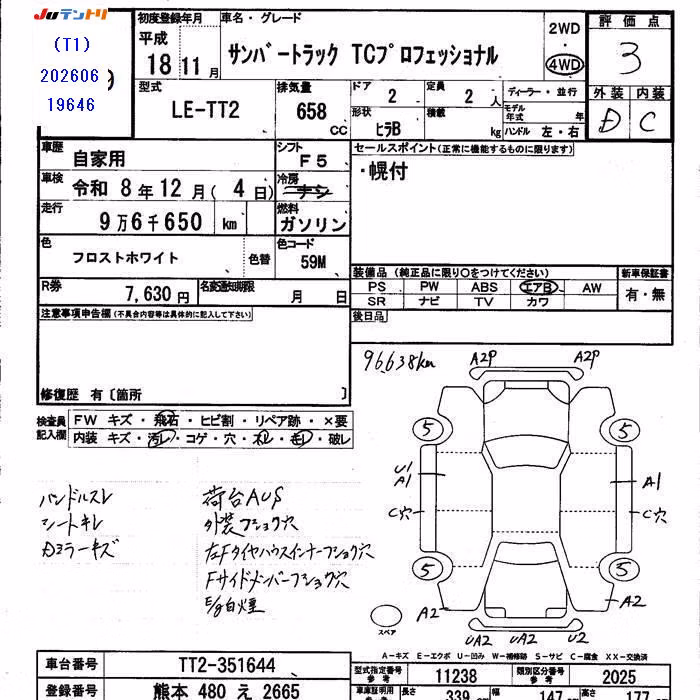 Juテントリ
(T1)
202606
19646
初度登録年月
平成
18 11月
車名・グレード
サンバートラック TCプロフェッショナル
2WD
・
4WD
評価点
3
外装 内装
D C
型式
LE-TT2
排気量
658 CC
ドア
2
定員
2 人
形状
ヒラB
積載
kg
ディーラー・並行
モデル年式 年
ハンドル 左・右
車歴
自家用
シフト
F5
車検
令和 8年12月(4日)
冷房
ナシ
走行
9万6千650 km
燃料
ガソリン
色
フロストホワイト
色替
色コード
59M
R券
7,630円
名変通知期限
月 日
セールスポイント(正常に機能するものに限ります)
・幌付
装備品 (純正品に限り○をつけてください)
PS PW ABS エアB AW
SR ナビ TV カワ
新車保証書
有・無
後日品
注意事項申告欄(不具合内容等は具体的に記入して下さい)
修復歴 有〔箇所 〕
検査員記入欄
FW キズ・飛石・ヒビ割・リペア跡・×要
内装 キズ・汚レ・コゲ・穴・スレ・キレ・破レ
ハンドルスレ
シートキレ
Dミラーキズ
荷台AUS
外装フショク穴
左Fタイヤハウスインナーフショク穴
Fサイドメンバーフショク穴
E/g白煙
96,638km
A2P A2P
5 5
U1
A1
A1
C穴 C穴
5 5
A2 A2
UA2 UA2 U2
スペア
A-キズ E-エクボ U-凹み W-補修跡 S-サビ C-腐食 XX-交換済
車台番号
TT2-351644
登録番号
熊本 480 え 2665
型式指定番号
参考
11238
類別区分番号
参考
2025
車庫証明用
参考
長さ
339
幅
147
高さ
177